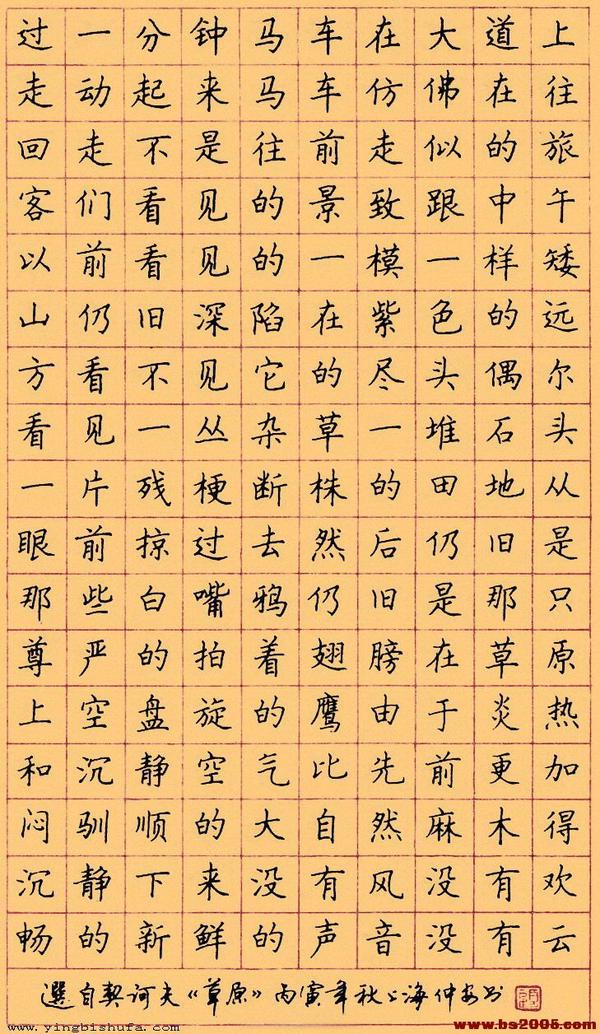 过一分钟马车在大道上
走动起来马车仿佛在往
回走不是往前走似的旅
客们看见的景致跟中午
以前看见的一模一样矮
山仍旧深陷在紫色的远
方看不见它的尽头偶尔
看见一丛杂草一堆石头
一片残梗断株的田地从
眼前掠过去然后仍旧是
那些白嘴鸦仍旧是那只
尊严的拍着翅膀在草原
上空盘旋的鹰由于炎热
和沉静空气比先前更加
闷驯顺的大自然麻木得
沉静下来没有风没有欢
畅的新鲜的声音没有云
選自契诃夫《草原》丙寅年秋上海仲安书
www.yingbishufa.com
www.bs2005.com